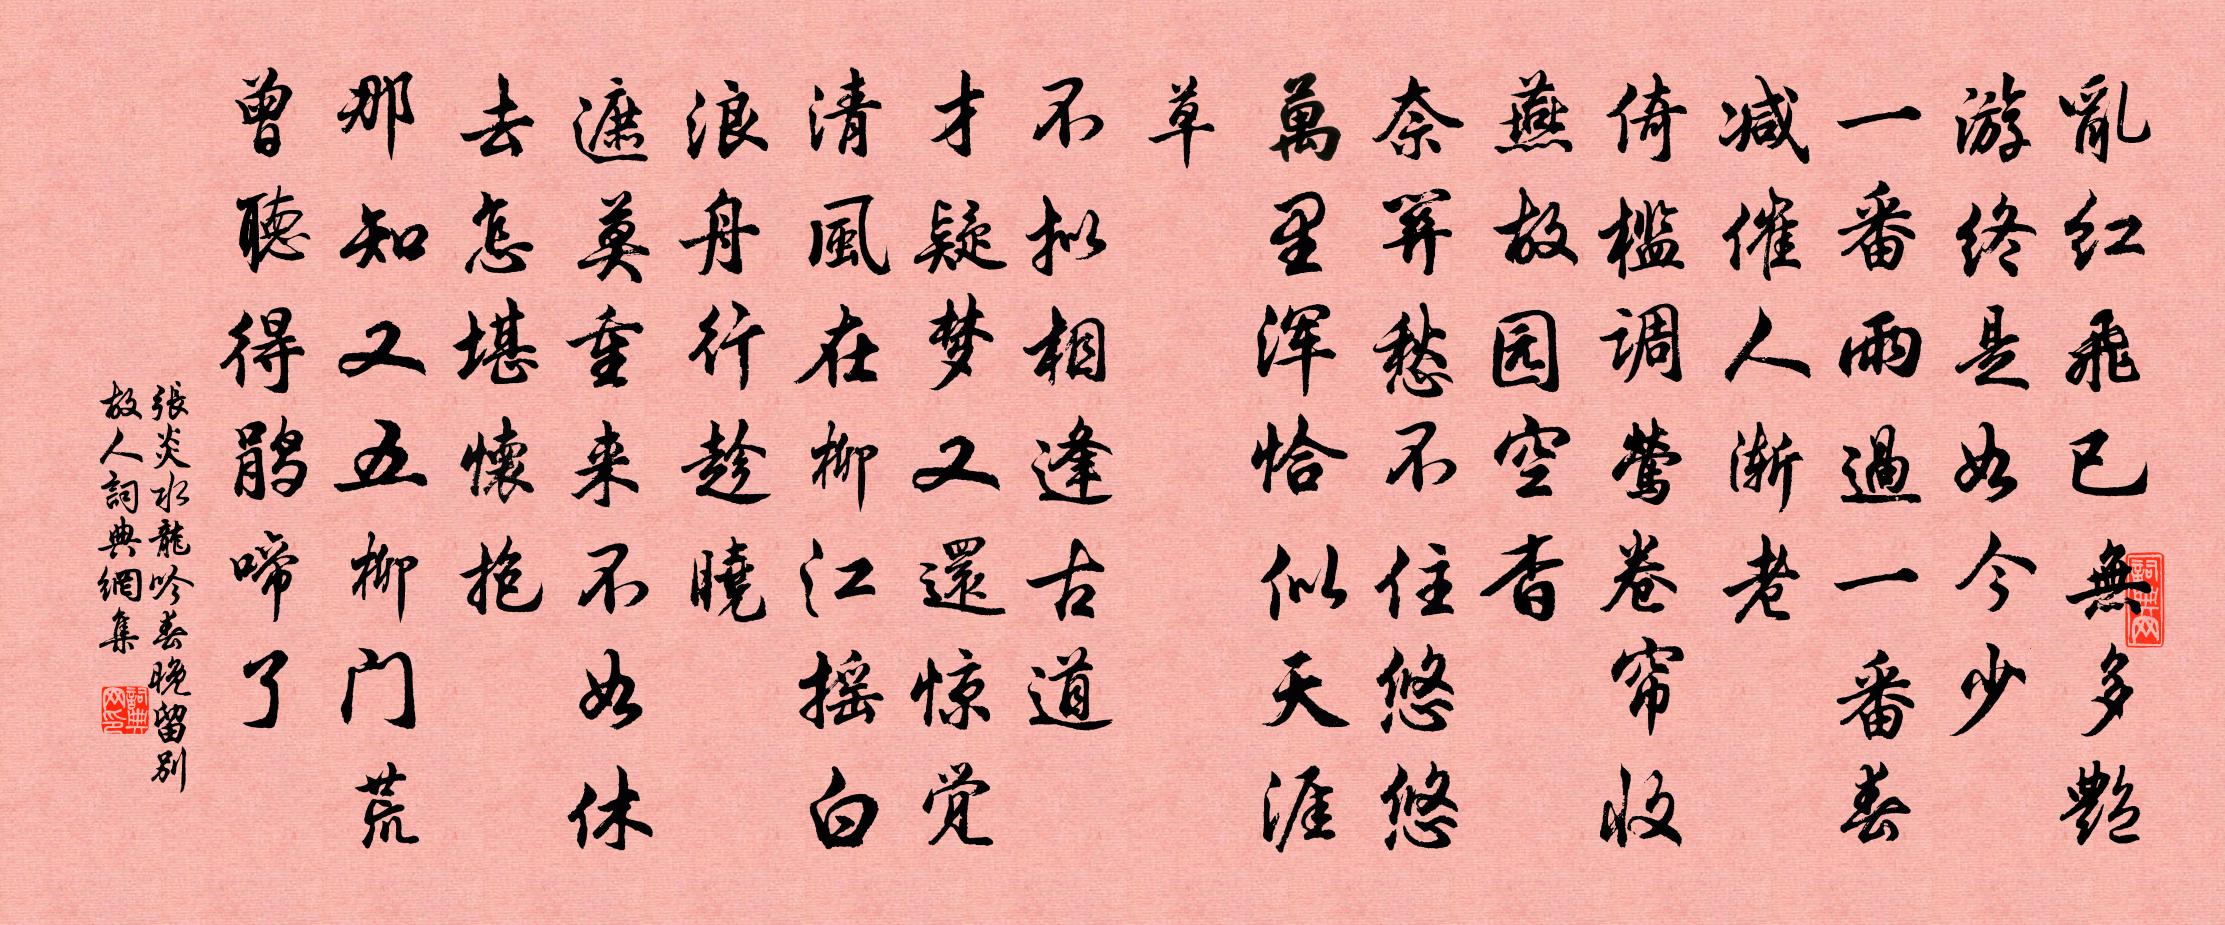 亂红飛已無多艷
游终是如今少
一番雨過一番春
减催人渐老
倚檻調鶯卷帘收
燕故园空杳
奈関愁不住悠悠
萬里浑恰似天涯
草
不拟相逢古道
才疑梦又還惊觉
清風在柳江摇白
浪舟行趁曉
遮莫重来不如休
去怎堪懷抱
那知又五柳门荒
曾聽得鹃啼了
張炎水龍吟春晚留别
故人詞典網集
詞典网
詞典网印